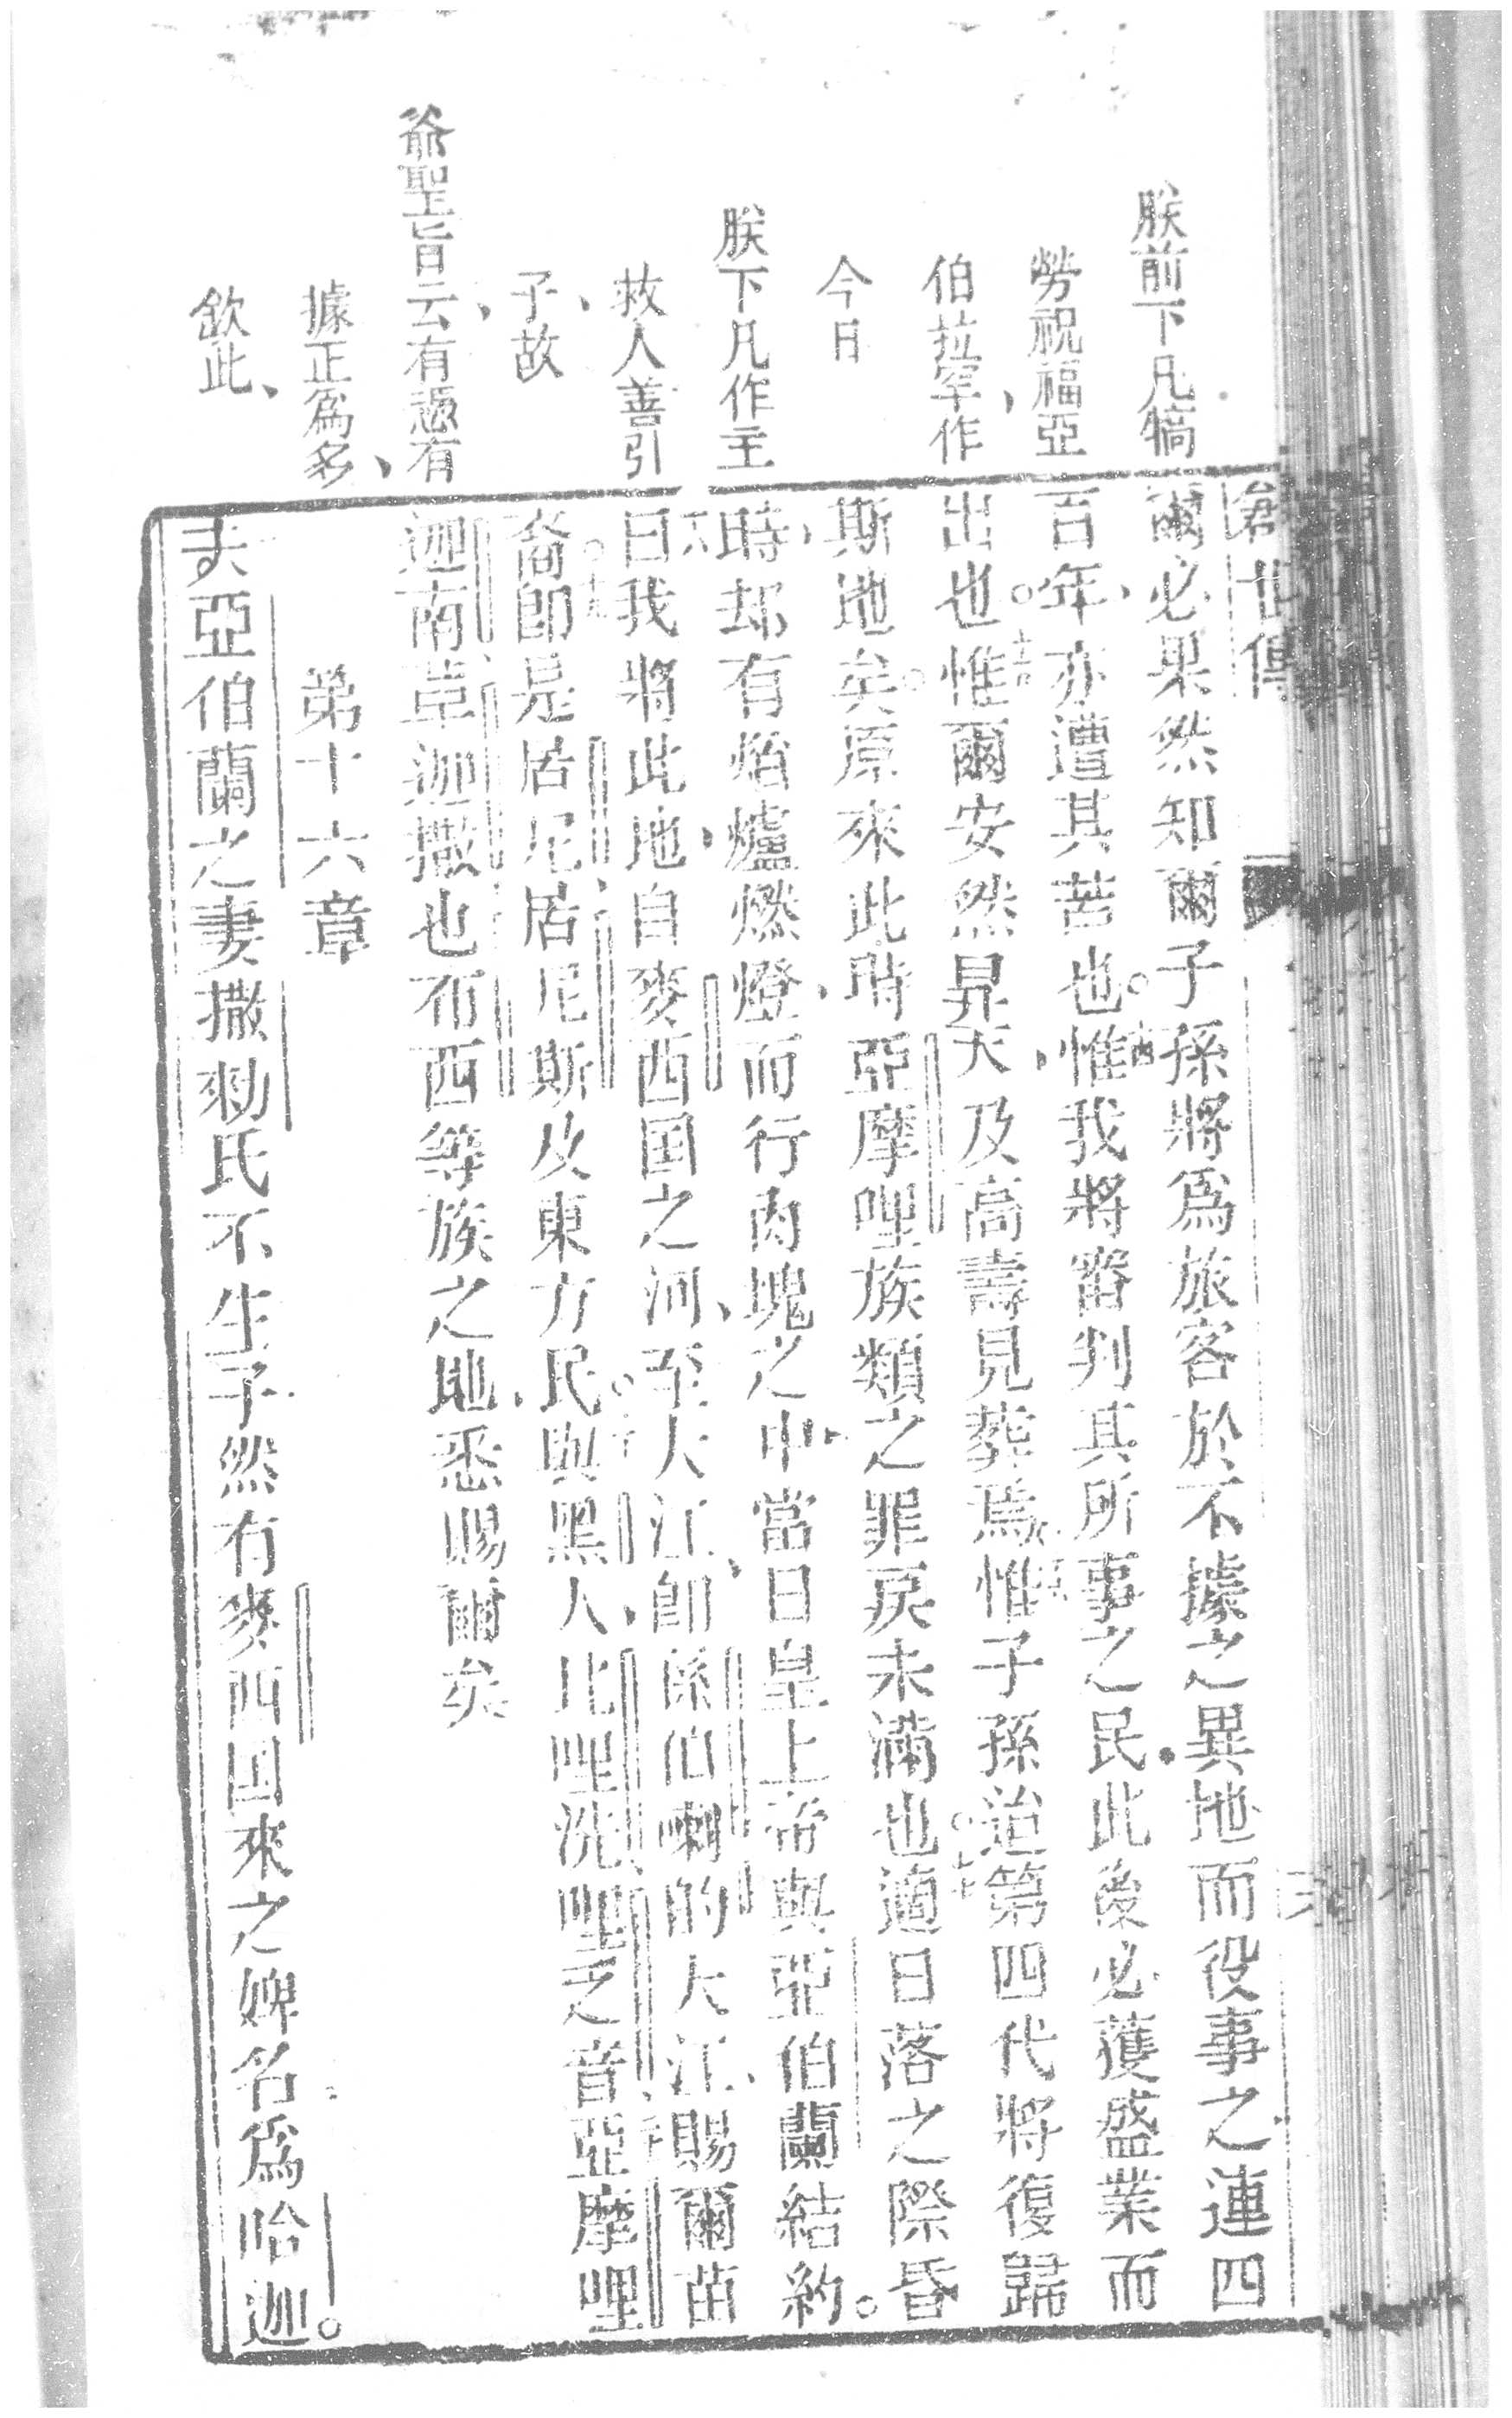 朕前下凡犒
勞祝福亞
伯拉罕作
今日
朕下凡作主
救人善引
子故
爺聖旨云有憑有
據正爲多
欽此、
爾必果然知爾子孫將爲旅客於不據之異地而役事之連四
百年、亦遭其苦也。惟我將審判其所事之民此後必獲盛業而
出也。惟爾安然昇天、及高壽見葬焉。惟子孫迨第四代將復歸
斯地矣。原來此時亞摩哩族類之罪戾未滿也。適日落之際昏
時、却有焰爐燃燈、而行肉塊之中、當日皇上帝與亞伯蘭結約。
曰我將此地、自麥西国之河、至大江、卽係伯喇的大江、賜爾苗
裔。卽是居尼、居尼斯及東方民。與黑人、比哩洗、哩乏音、亞摩哩
迦南、革迦撒也、布西等族之地、悉賜爾矣
第十六章
夫亞伯蘭之妻撒剌氏不生子然有麥西国來之婢名爲哈迦。